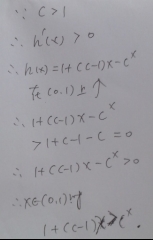 ∵ C>1
∴ h'(x) > 0
∴ h(x)=1+(c-1)x-c^x
在(0,1)上↑
∴ 1+(c-1)x-c^x
>1+c-1-c=0
∴ 1+(c-1)x-c^x>0
∴x∈(0,1)时
1+(c-1)x>c^x.